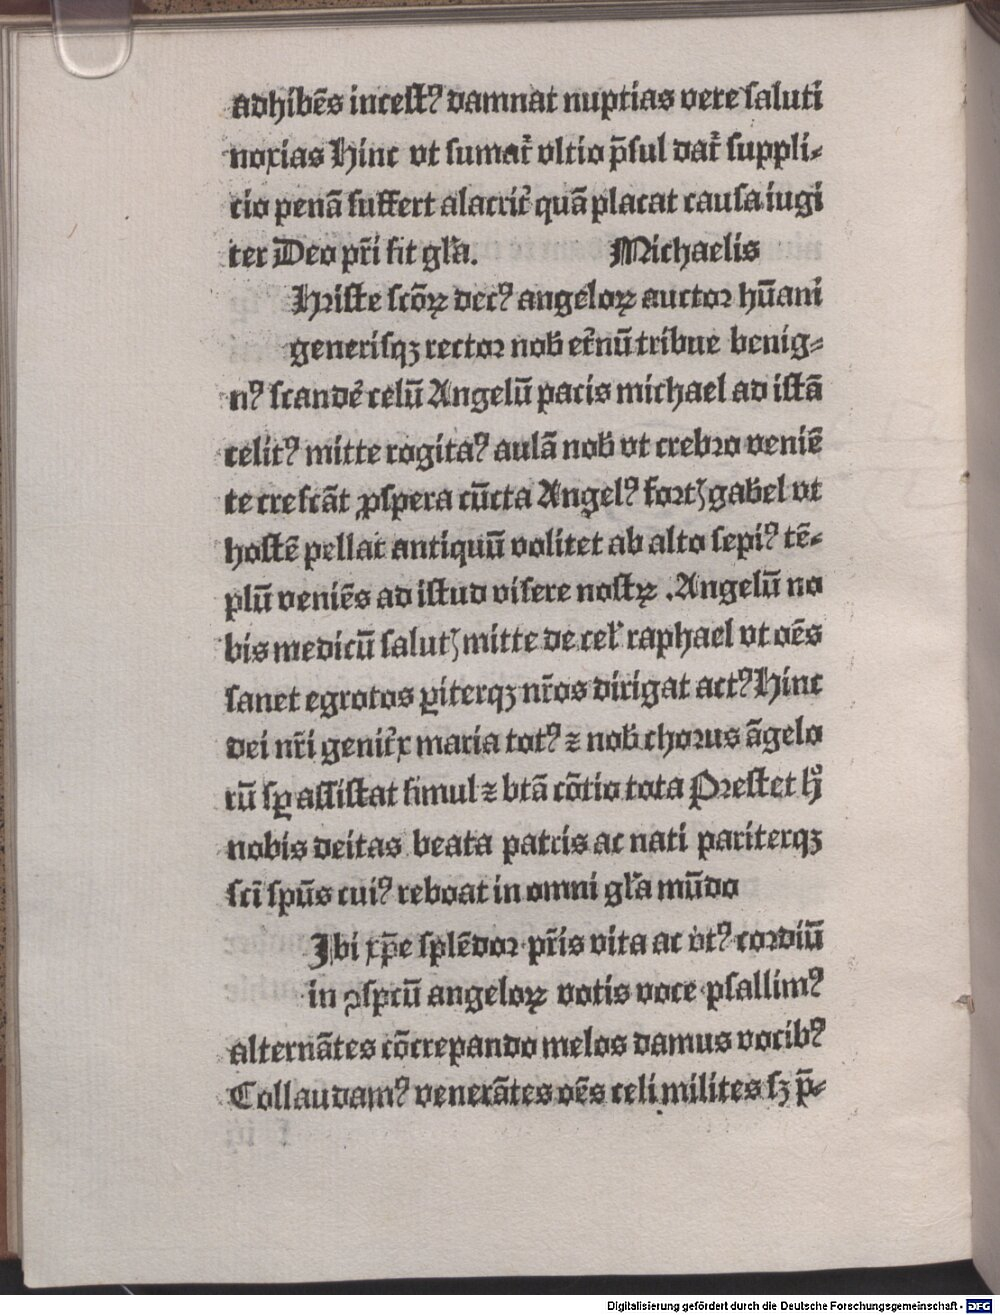 adhibẽs incestꝰ damnat nuptias vere saluti
noxias Hinc vt sumat᷑ vltio p̃sul dat᷑ suppli⸗
cio penã suffert alacrit᷑ quã placat causa iugi
ter Deo pr̃i sit gl̃a. Michaelis
Hriste scõꝝ decꝰ angeloꝝ auctor hũani
generisqꝫ rector nob̃ et᷑nũ tribue benig⸗
nꝰ scande᷑ celũ Angelũ pacis michael ad istã
celitꝰ mitte rogitaꝰ aulã nob̃ vt crebro veniẽ
te crescãt ꝓspera cũcta Angelꝰ fortꝭ gab̃el vt
hostẽ pellat antiquũ volitet ab alto sepiꝰ tẽ⸗
plũ veniẽs ad istud visere nostꝝ .Angelũ no
bis medicũ salutꝭ mitte de cel̃ raphael vt oẽs
sanet egrotos ꝑiterqꝫ nr̃os dirigat actꝰ Hinc
dei nr̃i genit᷑x maria totꝰ ⁊ nob̃ chorus ãgelo
rũ sꝑ assistat simul ⁊ btã cõtio tota Prestet hͦ
nobis deitas beata patris ac nati pariterqꝫ
scĩ spũs cuiꝰ reboat in omni gl̃a mũdo
Jbi xp̃e splẽdor pr̃is vita ac vtꝰ cordiũ
in ꝯspctũ angeloꝝ votis voce psallimꝰ
alternãtes cõcrepando melos damus vocibꝰ
Collaudamꝰ venerãtes oẽs celi milites sꝫ p̃⸗
Digitalisierung gefördert durch die Deutsche Forschungsgemeinschaft - DFG